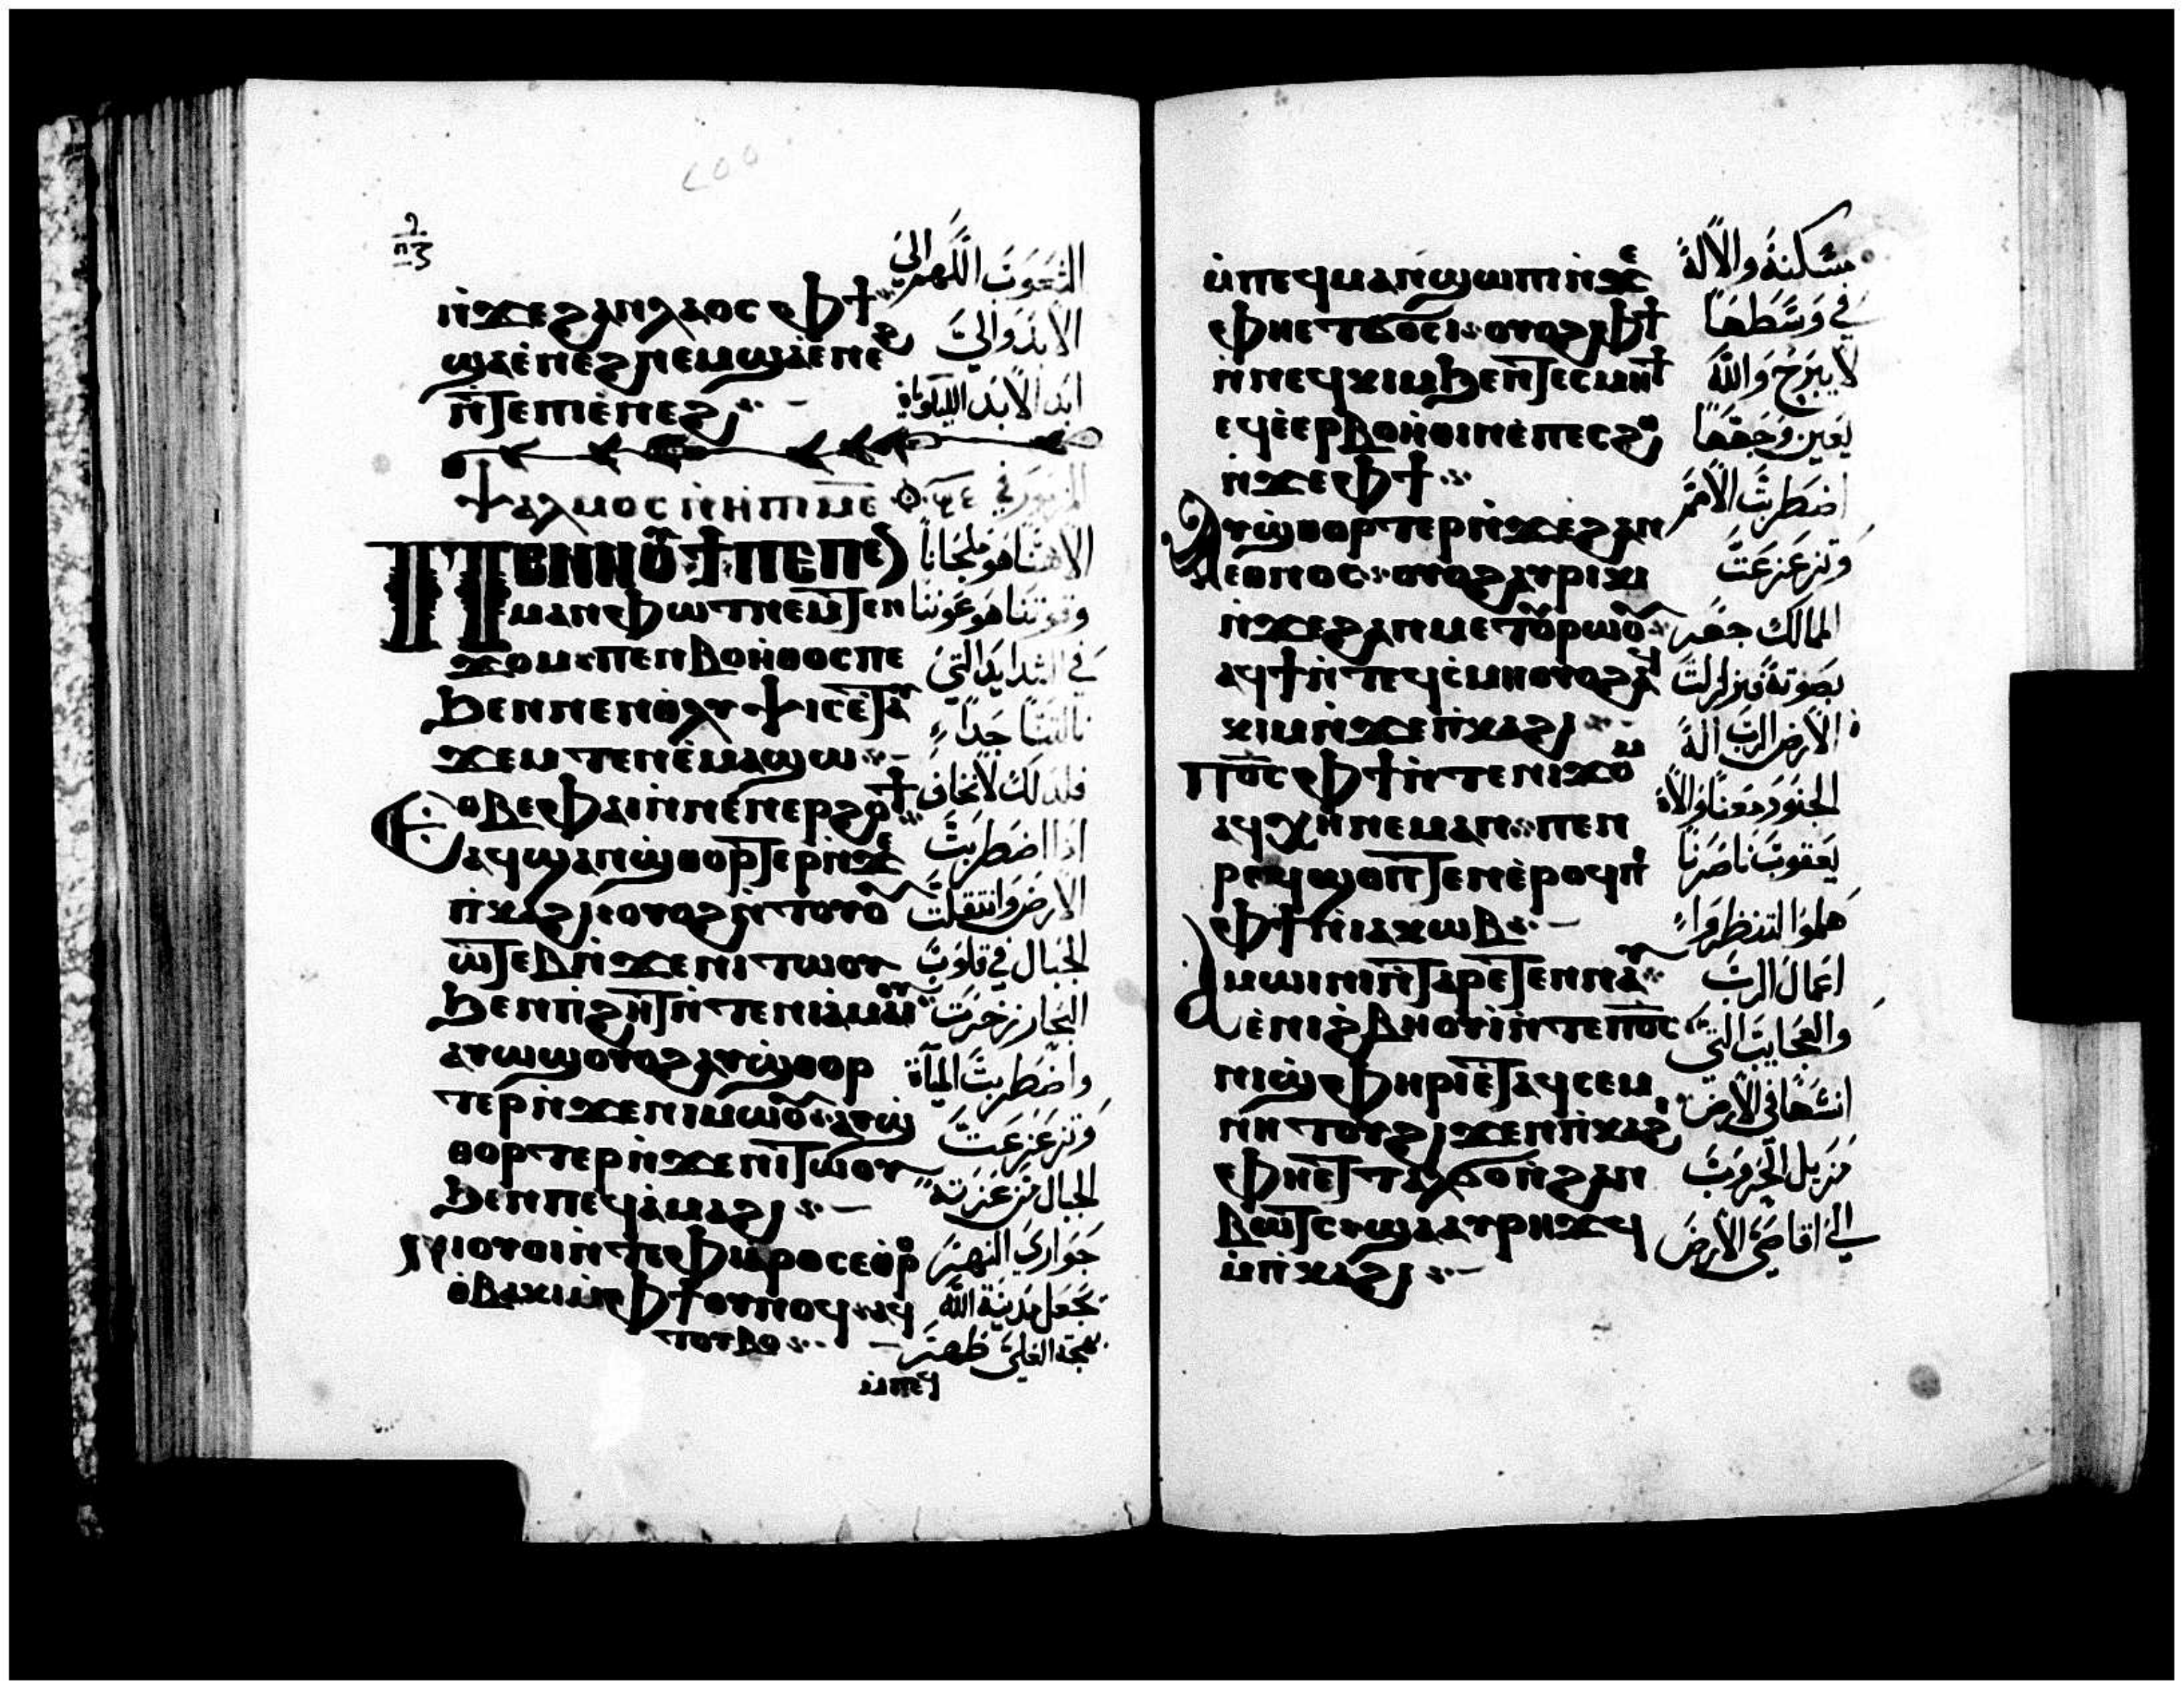 ⲛ̀ϫⲉϩⲁⲛⲗⲁⲟⲥ ⲫϯ
ϣⲁⲉ̀ⲛⲉϩ ⲛⲉⲙϣⲁⲉ̀ⲛⲉϩ
ⲛ̀ⲧⲉⲡⲓⲉ̀ⲛⲉϩ
الشعوب اللهم الي
الابد والي
ابد الابد الليلويا
ⲯⲁⲗⲙⲟⲥ ⲙ̅ⲉ̅
ⲡⲉⲛⲛⲟⲩϯ ⲡⲉ ⲡⲉ
ⲙⲁⲛⲫⲱⲧ ⲛⲉⲙⲧⲉⲛ
ϫⲟⲙ ⲡⲉⲛⲃⲟⲏ̀ⲑⲟⲥ ⲡⲉ
ϧⲉⲛⲛⲉⲛⲑ̀ⲗⲩⲯⲓⲥ ⲉ̀ⲧⲁⲩ
ϫⲉⲙⲧⲉⲛ ⲉ̀ⲙⲁϣⲱ
ⲉⲑⲃⲉⲫⲁⲓ ⲛ̀ⲛⲉⲛⲉⲣϩⲟϯ
ⲁϥϣⲁⲛϣ̀ⲑⲟⲣⲧⲉⲣ ⲛ̀ϫⲉ
ⲡ̀ⲕⲁϩⲓ ⲟⲩⲟϩ ⲛ̀ⲧⲟⲩⲟⲩ
ⲱⲧⲉⲃ ⲛ̀ϫⲉⲛⲓⲧⲱⲟⲩ
ϧⲉⲛⲡ̀ϩⲏⲧ ⲛ̀ⲧⲉⲛⲓⲁ̀ⲙⲁⲓⲟⲩ
ⲁⲩⲱϣ ⲟⲩⲟϩ ⲁⲩϣ̀ⲑⲟⲣ
ⲧⲉⲣ ⲛ̀ϫⲉⲛⲓⲙⲱⲟⲩ ⲁⲩϣ̀
ⲑⲟⲣⲧⲉⲣ ⲛ̀ϫⲉⲛⲓⲧⲱⲟⲩ
ϧⲉⲛⲡⲉϥⲁ̀ⲙⲁϩⲓ
ⲛⲓⲟⲩⲟⲓ ⲛ̀ⲧⲉⲫ̀ⲓⲁⲣⲟ ⲥⲉⲑ̀ⲣⲟ
ⲑ̀ⲃⲁⲕⲓ ⲙ̀ⲫϯ ⲟⲩⲛⲟϥ ⲁϥ
ⲧⲟⲩⲃⲟ
ⲙ̀ⲡⲉϥ
الاهنا هو ملجانا
وقوتنا هو عوننا
في الشدايد التي
نالتنا جدا
فلذلك لا نخاف
اذا اضطربت
الارض وانتقلت
الجبال في قلوب
البحار زخرت
واضطربت المياه
وتزعزعت
الجبال من عزته
جواري النهر
تجعل مدينة الله
بهجة العلي طهر
ⲙ̀ⲡⲉϥⲙⲁⲛϣⲱⲡⲓ ⲛ̀ϫⲉ
ⲫⲏⲉⲧϭⲟⲥⲓ ⲟⲩⲟϩ ⲫϯ
ⲛ̀ⲛⲉϥⲕⲓⲙ ϧⲉⲛⲧⲉⲥⲙⲏϯ
ⲉϥⲉ̀ⲉⲣⲃⲟⲏ̀ⲑⲓⲛ ⲉ̀ⲡⲉⲥϩⲟ
ⲛ̀ϫⲉⲫϯ
ⲁⲩϣ̀ⲑⲟⲣⲧⲉⲣ ⲛ̀ϫⲉϩⲁⲛ
ⲉⲑⲛⲟⲥ ⲟⲩⲟϩ ⲁⲩⲣⲓⲕⲓ
ⲛ̀ϫⲉϩⲁⲛⲙⲉⲧⲟⲩⲣⲱⲟⲩ
ⲁϥϯ ⲛ̀ⲧⲉϥⲥ̀ⲙⲏ ⲟⲩⲟϩ ⲁϥ
ⲕⲓⲙ ⲛ̀ϫⲉⲡ̀ⲕⲁϩⲓ
ⲡⲟ̅ⲥ̅ ⲫϯ ⲛ̀ⲧⲉⲛⲓϫⲟⲙ
ⲁϥⲭⲏ ⲛⲉⲙⲁⲛ ⲡⲉⲛ
ⲣⲉϥϣⲟⲡⲧⲉⲛ ⲉ̀ⲣⲟϥ ⲡⲉ
ⲫϯ ⲛ̀ⲓⲁⲕⲱⲃ
ⲁⲙⲱⲓⲛⲓ ⲛ̀ⲧⲁⲣⲉⲧⲉⲛⲛⲁⲩ
ⲉ̀ⲛⲓϩ̀ⲃⲏⲟⲩⲓ̀ ⲛ̀ⲧⲉⲡⲟ̅ⲥ̅
ⲛⲓϣ̀ⲫⲏⲣⲓ ⲉ̀ⲧⲁϥⲥⲉⲙ
ⲛⲏⲧⲟⲩ ϩⲓϫⲉⲛⲡ̀ⲕⲁϩⲓ
ⲫⲏⲉⲧⲧⲁⲕⲟ ⲛ̀ϩⲁⲛ
ⲃⲱⲧⲥ ϣⲁ ⲁⲩⲣⲏϫϥ
ⲙ̀ⲡ̀ⲕⲁϩⲓ
مسكنه والاله
في وسطها
لا يبرح والله
يعين وجهها
اضطربت الامم
وتزعزعت
الممالك جهر
بصوته فتزلزلت
الارض الرب اله
الجنود معنا والاه
يعقوب ناصرنا
هلموا لتنظروا
اعمال الرب
والعجايب التي
انشاها في الارض
مزيل الحروب
الي اقاصي الارض